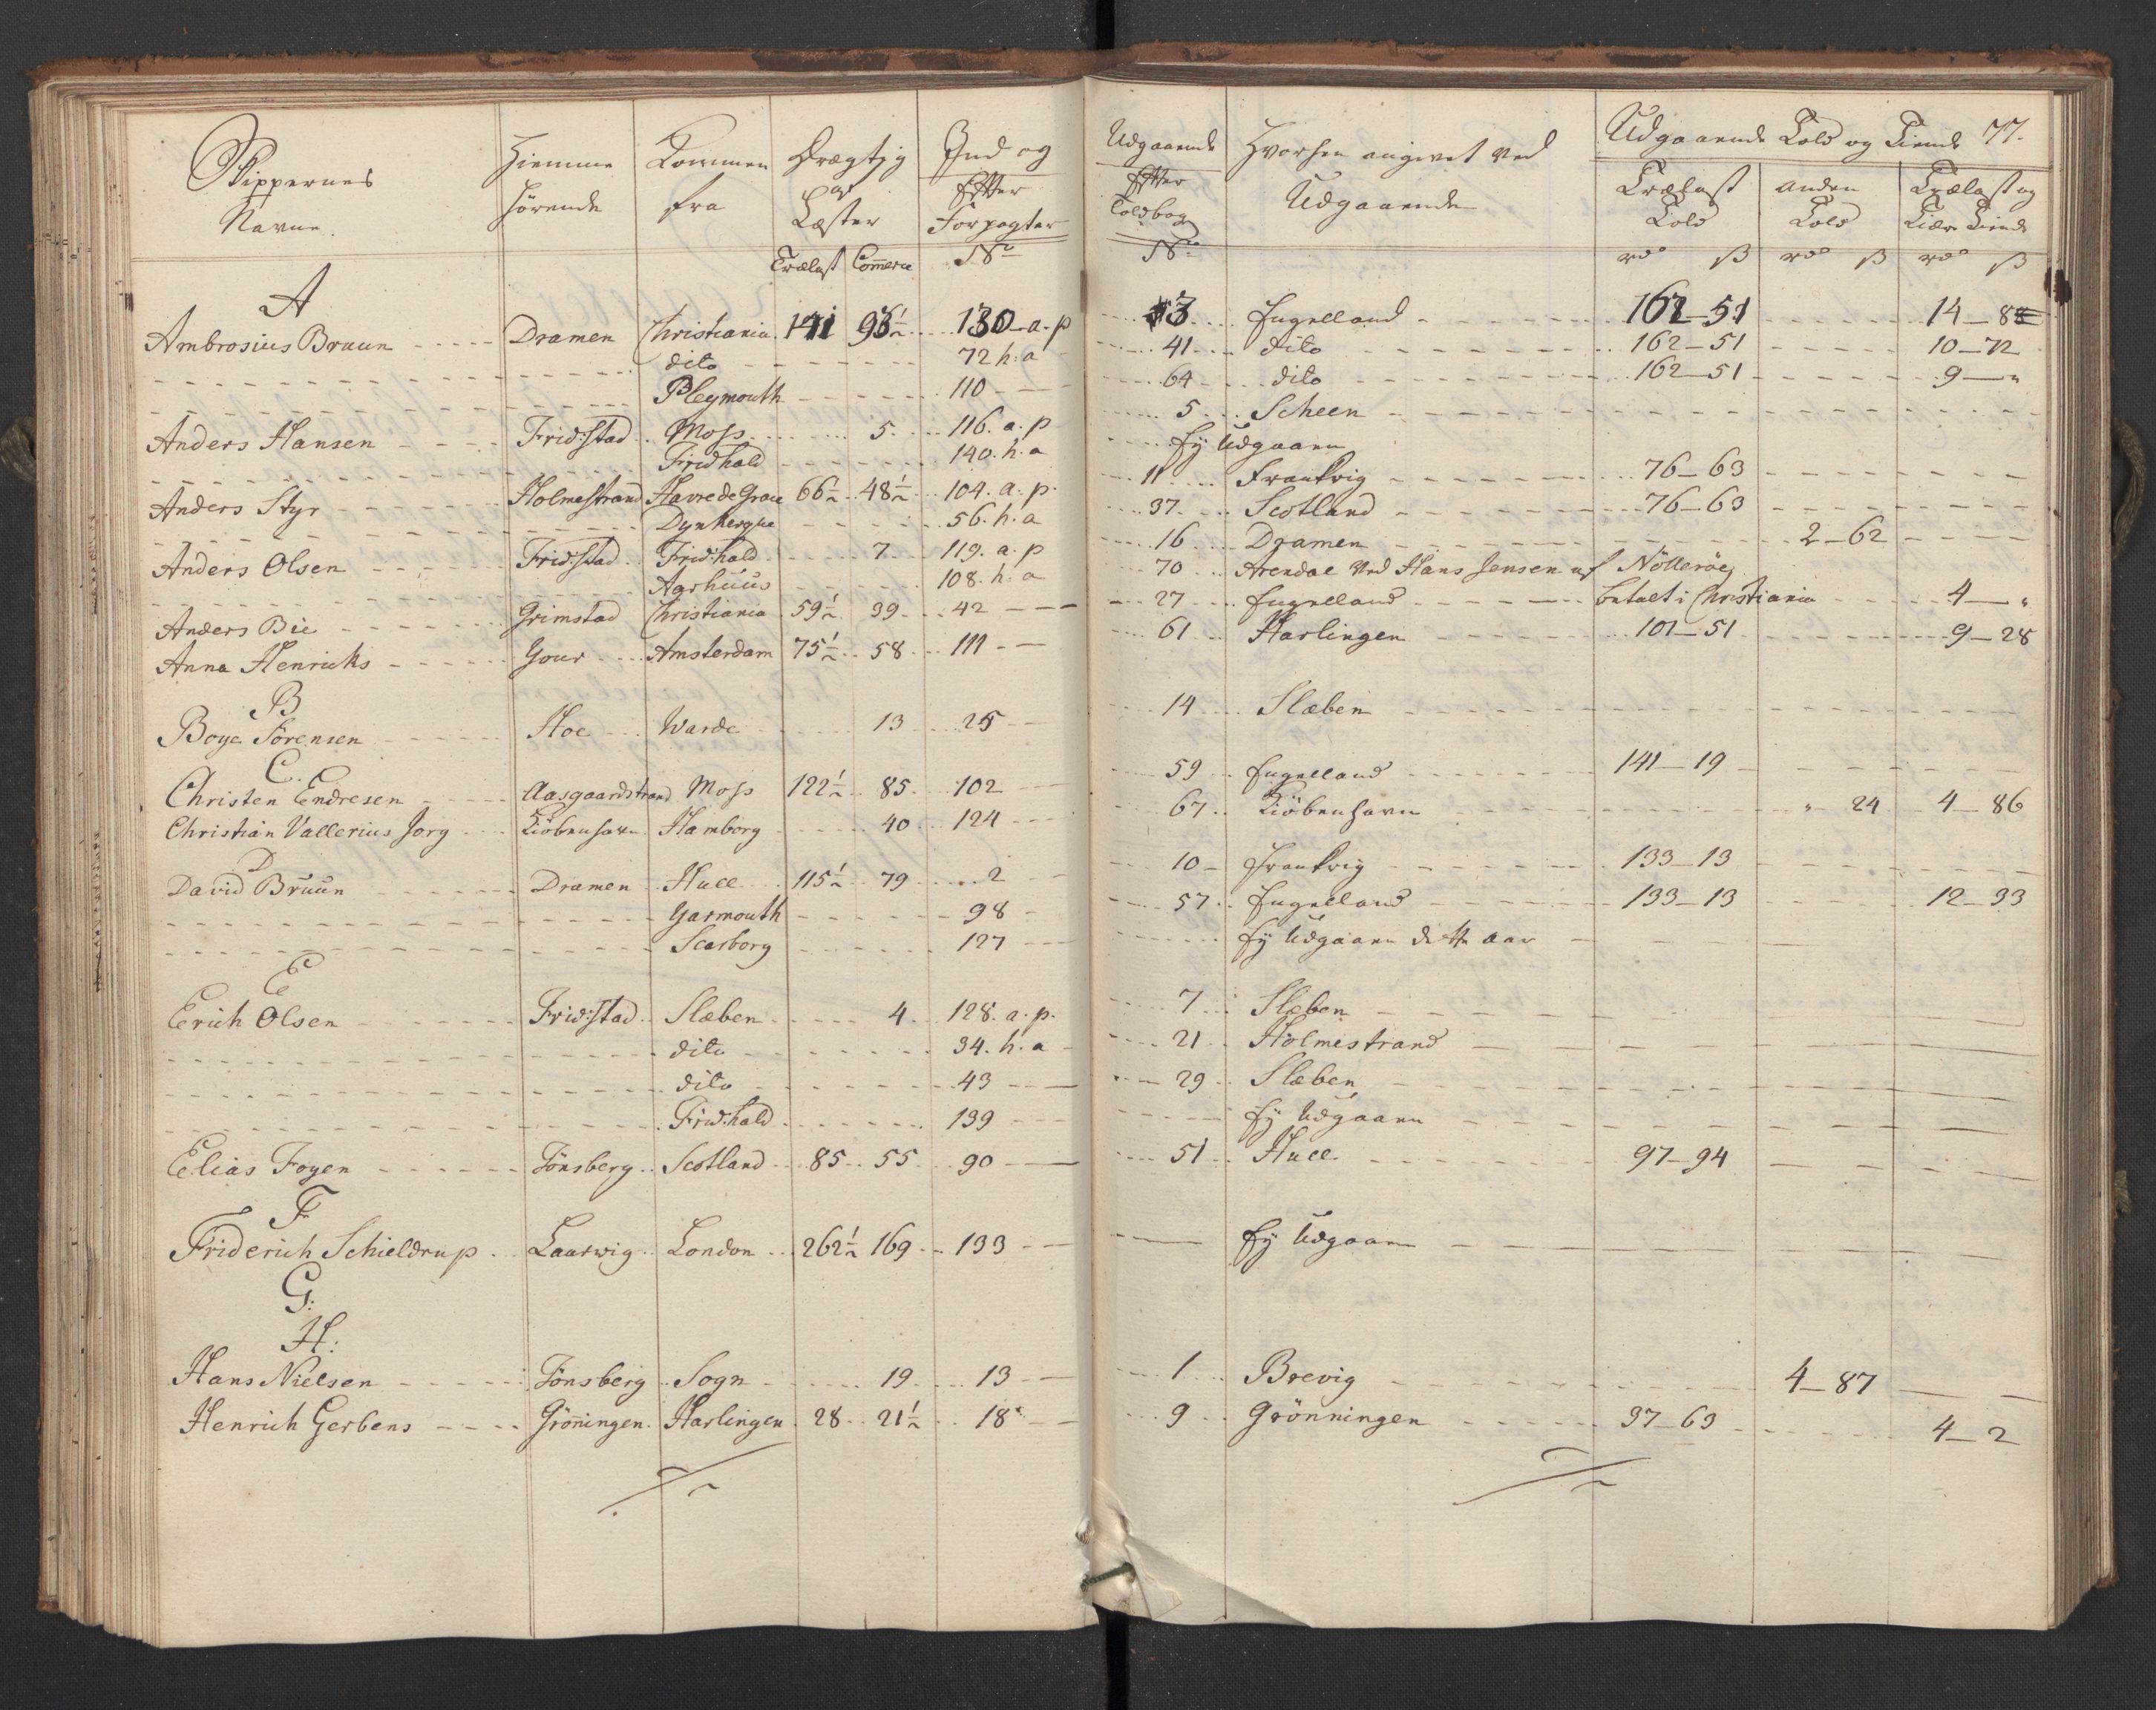 Skippernes Navne. Hiemme hörende Kommen fra Drægtig af Læster Ind og Efter Forpagter
Trælast Commerce No
Udgaaende Efter Toldbog No Hvorhen angivet ved Udgaaende Udgaaende Told og Tiende 77.
Trælast Told anden Told Trælast og Tiære Tiende
rd ß rd ß rd ß
A
Ambrosius Bruun Dramen Christiania 141 96½ 130 a. p 13 Engelland 162-51 14-8
dito 72 h. a 41 dito 162-51 10-72
Pleymouth 110 64 dito 162-51 9-"
Anders Hansen Frid:stad Moss 5 116. a. p 5 Scheen
Fridhald 140. h. a Ey Udgaaen
Anders Styr Holmestrand Havre de Grace 66½ 48½ 104. a. p. 11 Frankrig 76-63
Dynkerque 56. h. a 37 Scotland 76-63
Anders Olsen Frid:stad Frid:hald 7 119. a. p 16 Dramen 2-62
Aarhuus 108. h. a 70 Arendal ved Hans Jensen af Nötteröe
Anders Bie Grimstad Christiania 59½ 39 42 27 Engelland betalt i Christiania 4-"
Anna Henrichs Gour Amsterdam 75½ 58 111 61 Harlingen 101-51 9-28
B
Boye Sörensen Hoe Warde 13 25 14 Slæben
C.
Christen Endresen Aasgaardstrand Moss 122½ 85 102 59 Engelland 141-19
Christian Vallerius Jorg Kiöbenhavn Hamborg 40 124 67 Kiöbenhavn " 24 4-86
D
David Bruun Dramen Hull 115½ 79 2 10 Frankrig 133-13
Yarmouth 98 57 Engelland 133-13 12-33
Scarborg 127 Ey Udgaaen dette Aar
E
Erich Olsen Frid:stad Slæben 4 128. a. p. 7 Slæben
dito 34. h. a 21 Holmestrand
dito 43 29 Slæben
Frid:hald 139 Ey Udgaaen
Elias Foyen Tönsberg Scotland 85 55 90 51 Hull 97-94
F
Friderich Schieldrup Laurwig London 262½ 169 133 Ey Udgaaen
G:
H:
Hans Nielsen Tönsberg Sogn 19 13 1 Brevig 4-87
Henrich Gerbens Gröningen Harlingen 28 21½ 18 9 Grönningen 37-63 4-2